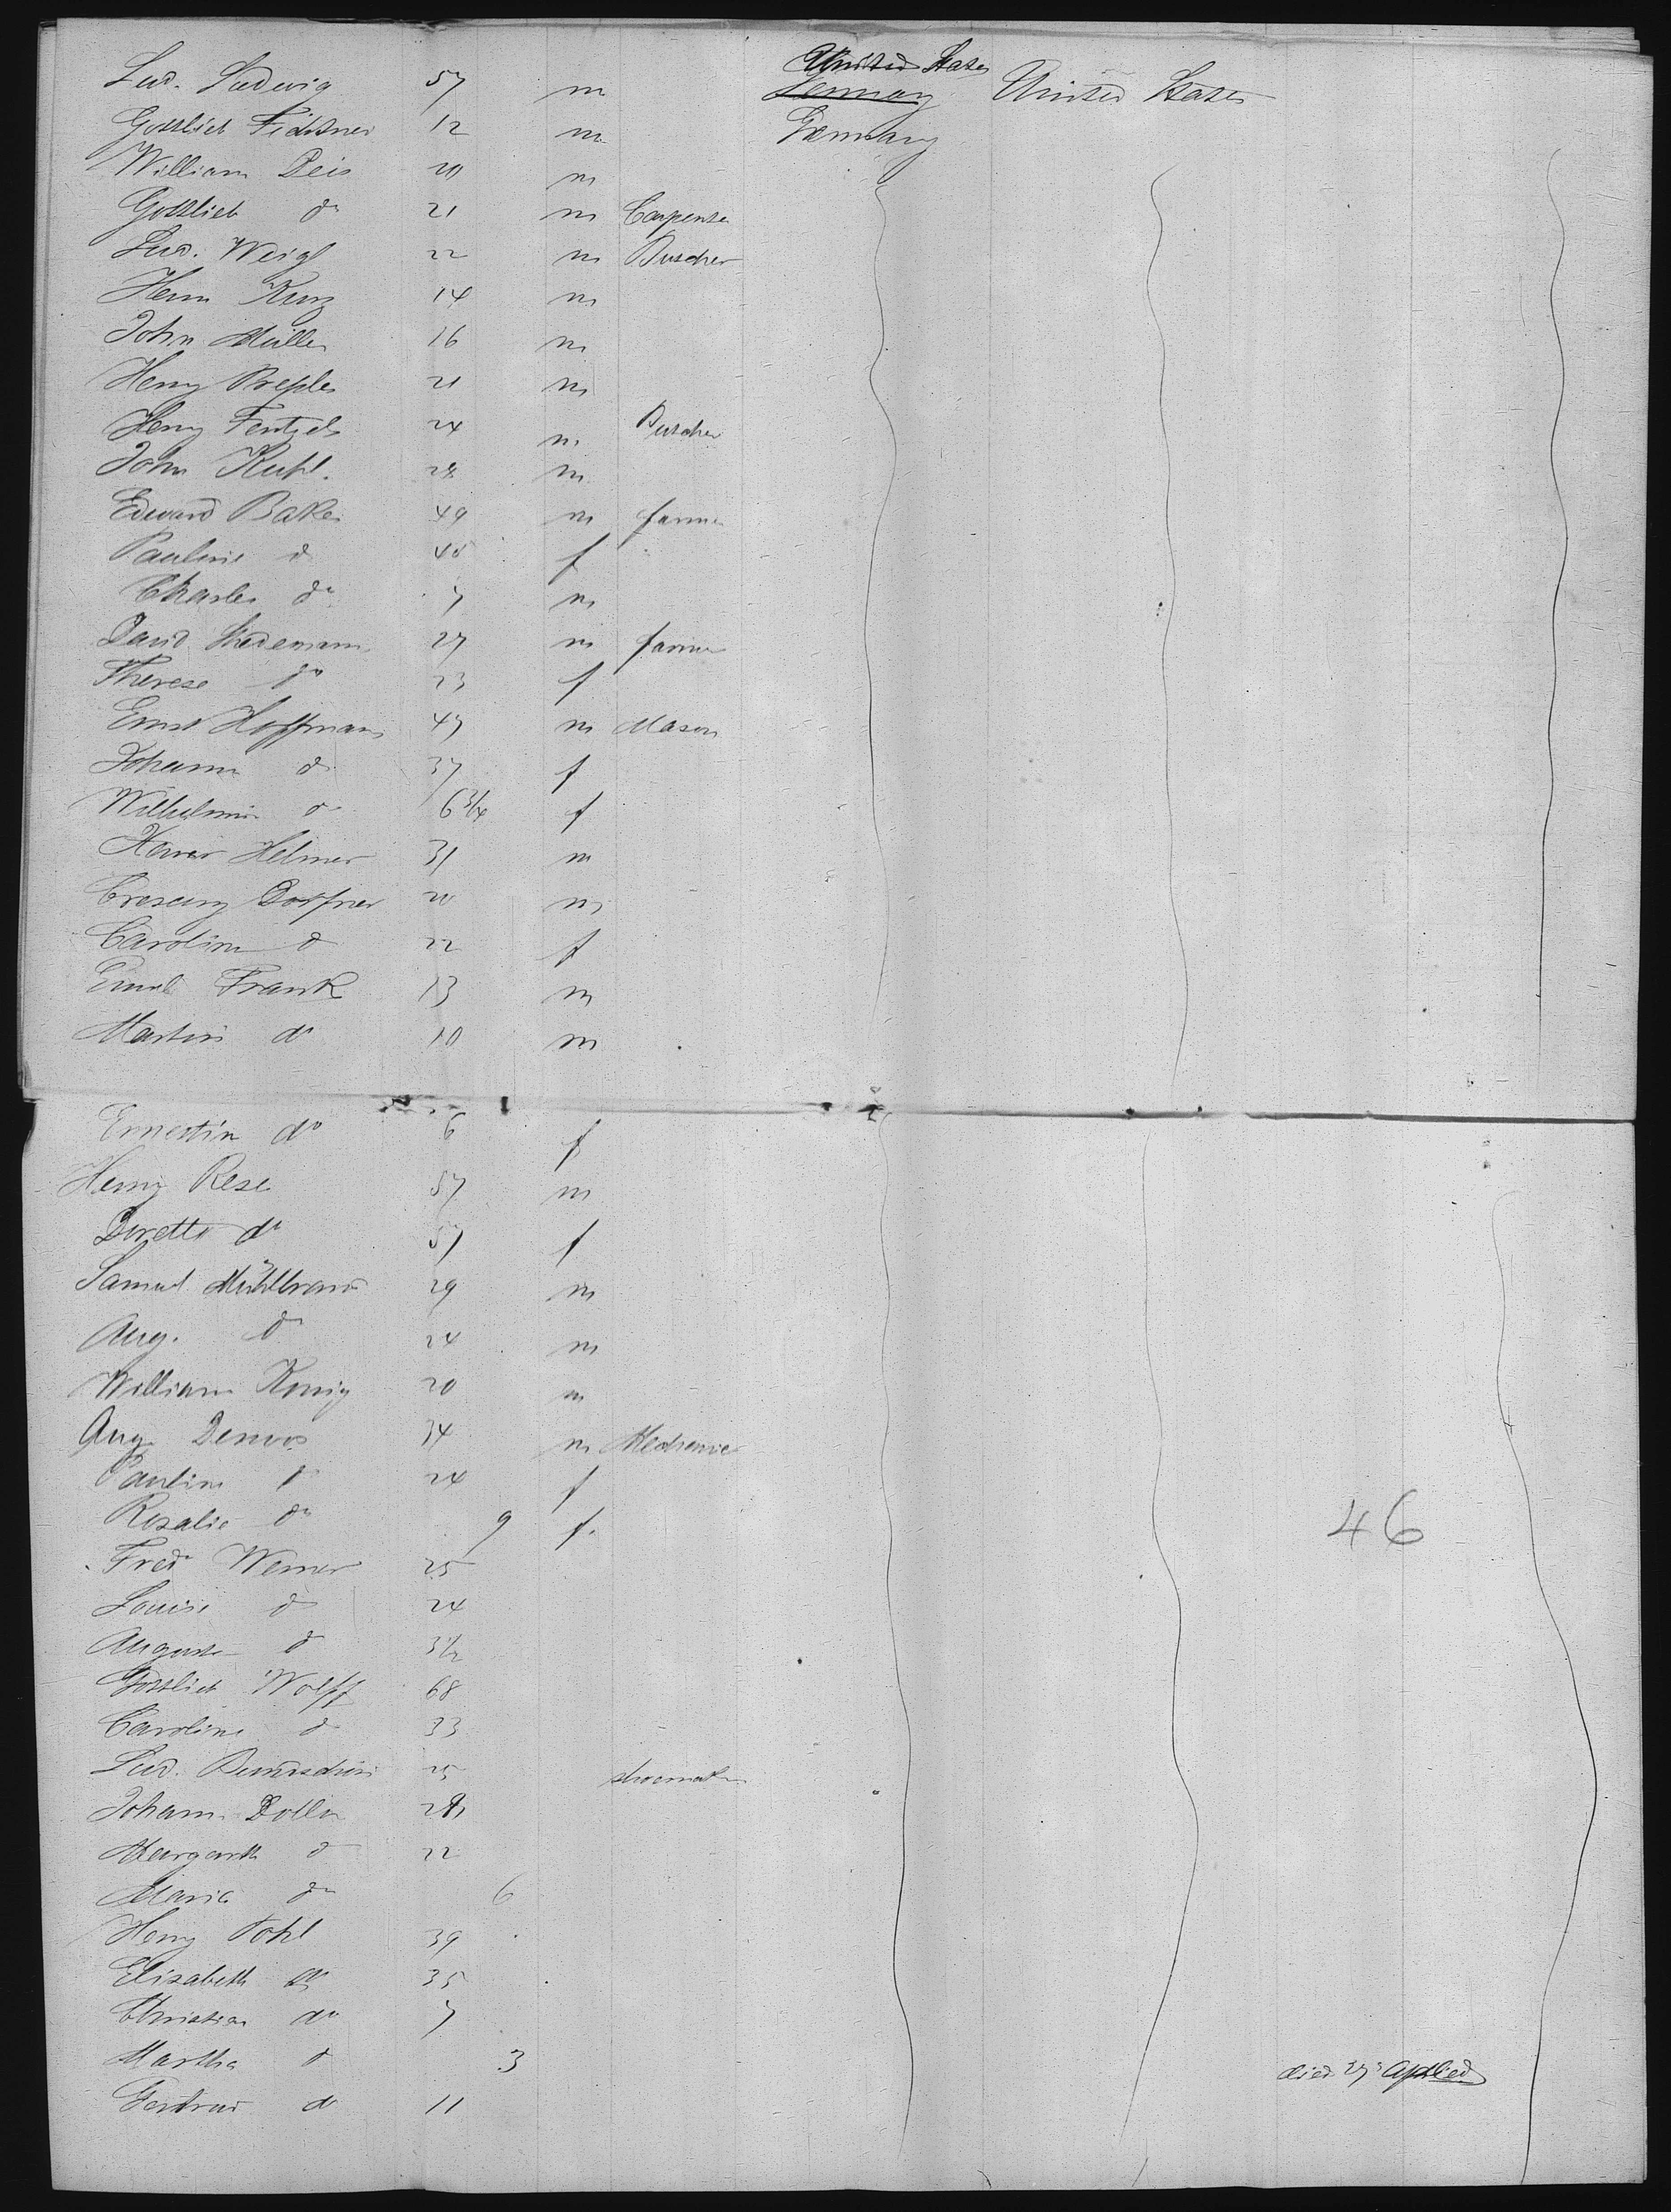 United States
Lud. Ludwig 57 m Germany United States
Gottlieb Fichtner 12 m Germany
William Deis 20 m
Gottlieb do 21 m Carpenter
Lud. Weigl 22 m Butcher
Herm Kurz 14 m
John Müller 16 m
Henry 21 m
Henry Fentzels 24 m Butcher
John Kuhl. 28 m
Edward Baker 49 m farmer
Pauline do 48 f
Charles do 7 m
David Liedemann 27 m farmer
Therese do 23 f
Ernst Hoffmann 47 m Mason
Johanna do 37 f
Wilhelmin do 6 3/4 f
Xaver Helmer 31 m
Crescenz Dorfner 20 m
Carolina do 22 f
Emil Frank 13 m
Martin do 10 m
Ernestin do 6 f
Henry Rese 57 m
Dorette do 57 f
Samuel Mühlbrand 29 m
Aug. do 24 m
William König 20 m
Aug. 34 m Mechanic
Pauline do 24 f
Rosalie do 9 f.
46
Fred Werner 25
Louise do 24
Auguste do 3 1/2
Gottlieb Wolff 68
Caroline do 33
Lud. 25 shoemaker
Johann Doller
Margareth do 22
Maria do 6
Henry Pohl 39
Elisabeth do 35
Christian do 7
Martha do 3 died
Gertrud do 11